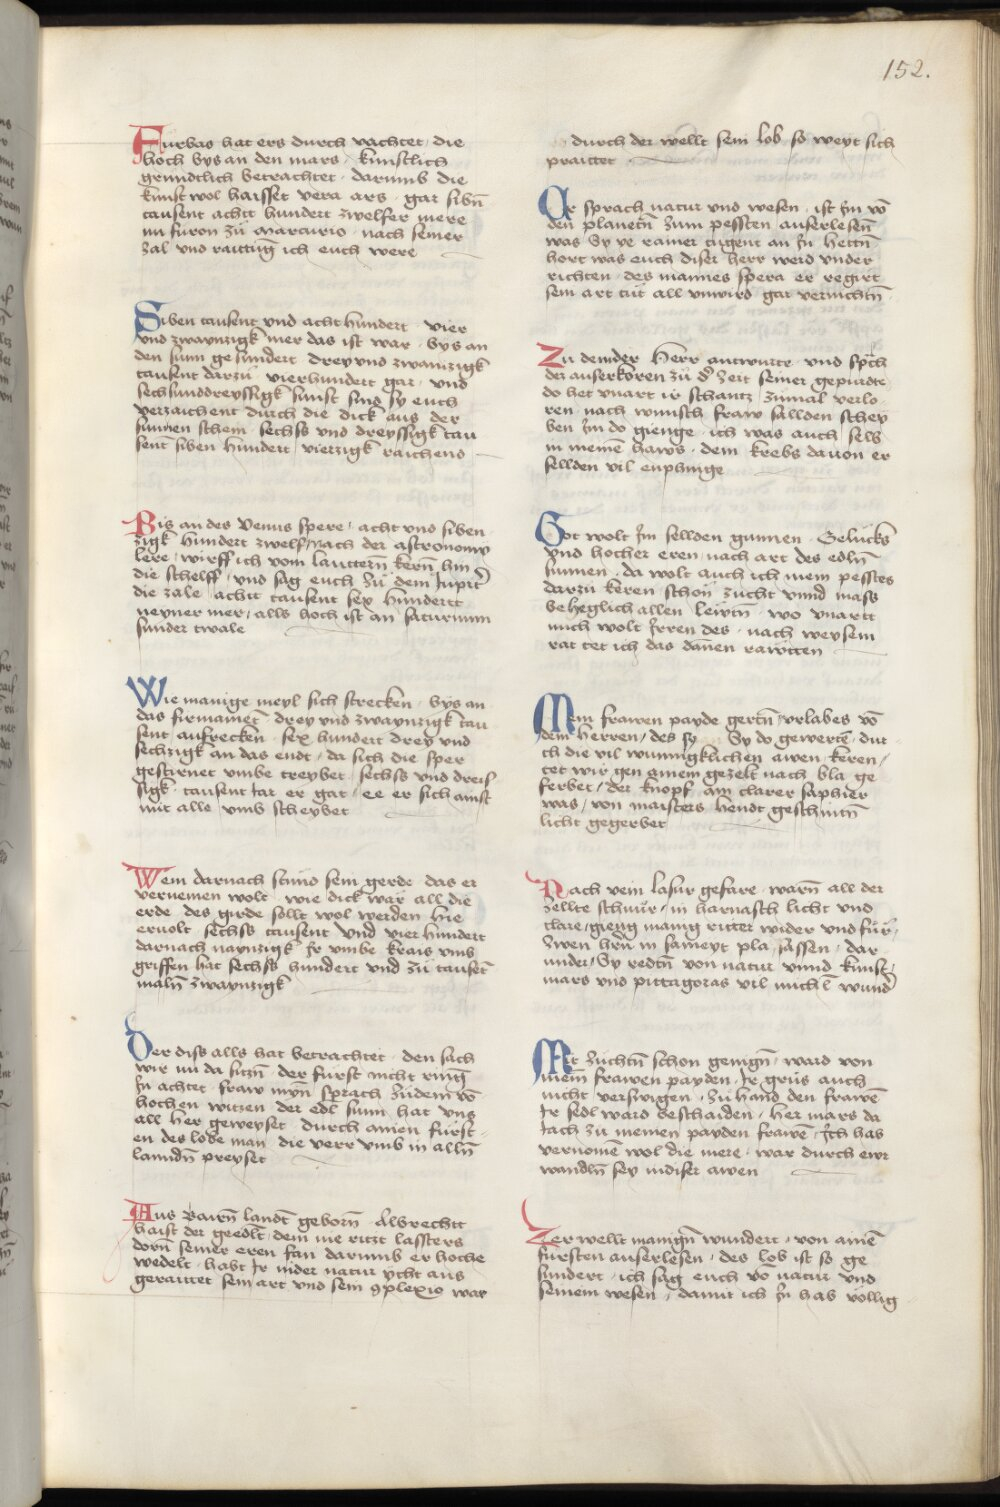 152.
Furbas hat ers durch vachtet die
hoch bys an den mars kunstlich
gruntlich betrachtet darumb die
kunst wol haisset vera ars gar sibn̄
tausent acht hundert zwelfer mere
nu furon zů Marcurio nach seiner
zal vnd raittung ich euch were
Siben tausent vnd acht hundert vier
vnd zwaynzigk mer das ist war bys an
den sunn gesundert drey vnd zwainzigk
tausent darzů vierhundert gar vnd
sechsunddreyssigk sunst sind sy euch
verzaichent durch die dick aus der
sunnen schein sechss vnd dreyssigk tau
sent siben hundert vierzigk raichend
Bis an des Venus spere acht vnd siben
zigk hundert zwelf nach der astronomy
lere wurff ich vom lauttern̄ kern̄ hin
die schelff vnd sag euch zů dem Jupit̄
die zale acht tausent sex hundertt
neyner mer alls hoch ist an saturnum
sunder twale
Wie manige meyl sich strecken bys an
das firmamēt drey vnd zwaynzigk tau
sent aufrecken sex hundert drey vnd
sechzigk an das endt da sich die sper
gestirnet vmbe treybet sechss vnd dreis
sigk tausent Jar er gat ee er sich ainst
mit alle vmb scheybet
Wem darnach stund sein gerde das er
vernemen wolt wie dick war all die
erde des girde sollt wol werden hie
ervolt sechss tausent vnd vier hundert
darnach naynzigk Jr vmbe krais vmb
griffen hat sechss hundert vnd zů tausēt
maln̄ zwaynzigk
Der diss alls hat betrachtet den sach
wir nu da sitzn̄ der furst nicht ring
Jn achtet fraw myn̄ sprach zů dem vō
hochen witzen der edl sunn hat vns
all her geweyset durch ainen furst
en des lobe man die verr vmb in alln̄
lanndn̄ preyset
Aus Bairn̄ landt geborn̄ Albrechtt
haist der geedlt dem nie ritzt lassters
dorn̄ seiner eren fan darumb er hoche
wedelt habt Jr nider natur ycht aus
geraittet sein art vnd sein 9plexio war
durch der wellt sein lob so weyt sich
praittet
Er sprach natur vnd wesen ist Jm vō
den planetn̄ zum pessten auserlesen̄
was Sy ye rainer tugent an Jn hettn̄
hort was euch diser herr werd vnder
richten des mannes spera er regirt
sein art tůt all vnwird gar vernichtn̄
Zu dem der herr antwurte vnd sp̄ch
der auserkoren zů d̓ zeit seiner gepurde
do het vnart ir schantz zumal verlo
ren nach wunsch fraw sallden schey
ben Jm do gienge ich was auch selb
in meinē haws dem krebs dauon er
sellden vil enphinge
Got wolt Jm sellden gunnen Gelucks
vnd hocher eren nach art des edln̄
sunnen da wolt auch ich mein pesstes
darzů keren schon zucht vnnd mass
beheglich allen lewtn̄ wo vnartt
mich wolt Jrren des nach weysem
rat tet ich das dannen rawtten
Mein frawen payde gertn̄ vrlabes vō
dem herren des sy Sy do gewertē dur
ch die vil wunnigklichen awen keren
tet wir gen ainem gezelt nach bla ge
ferbet der knopf am clarer saphier
was von maisters hendt geschnitn̄
licht gegerbet
Nach dem lasur gefare warn̄ all der
zellte schnůr in harnasch licht vnd
clare gieng manig ritter wider vnd fůr
zwen hr̄n in sameyt pla sassen dar
vnder Sy redtn̄ von natur vnnd kunst
mars vnd pittagoras vil michl̄ wund̄
Mit zůchtn̄ schon genign̄ ward von
mein̄ frawen payden Jr grůs auch
nicht verswigen zů hand den frawē
Jr sedl ward beschaiden her mars da
Jach zů meinen payden frawē Ich hab
vernomē wol die mere war durch ewr
wandln̄ sey indiser awen
Zer wellt manign̄ wundert von ainē
fursten auserlesen des lob ist so ge
sundert ich sag euch vō natur vnd
seinem wesen damit ich Jn hab vollig